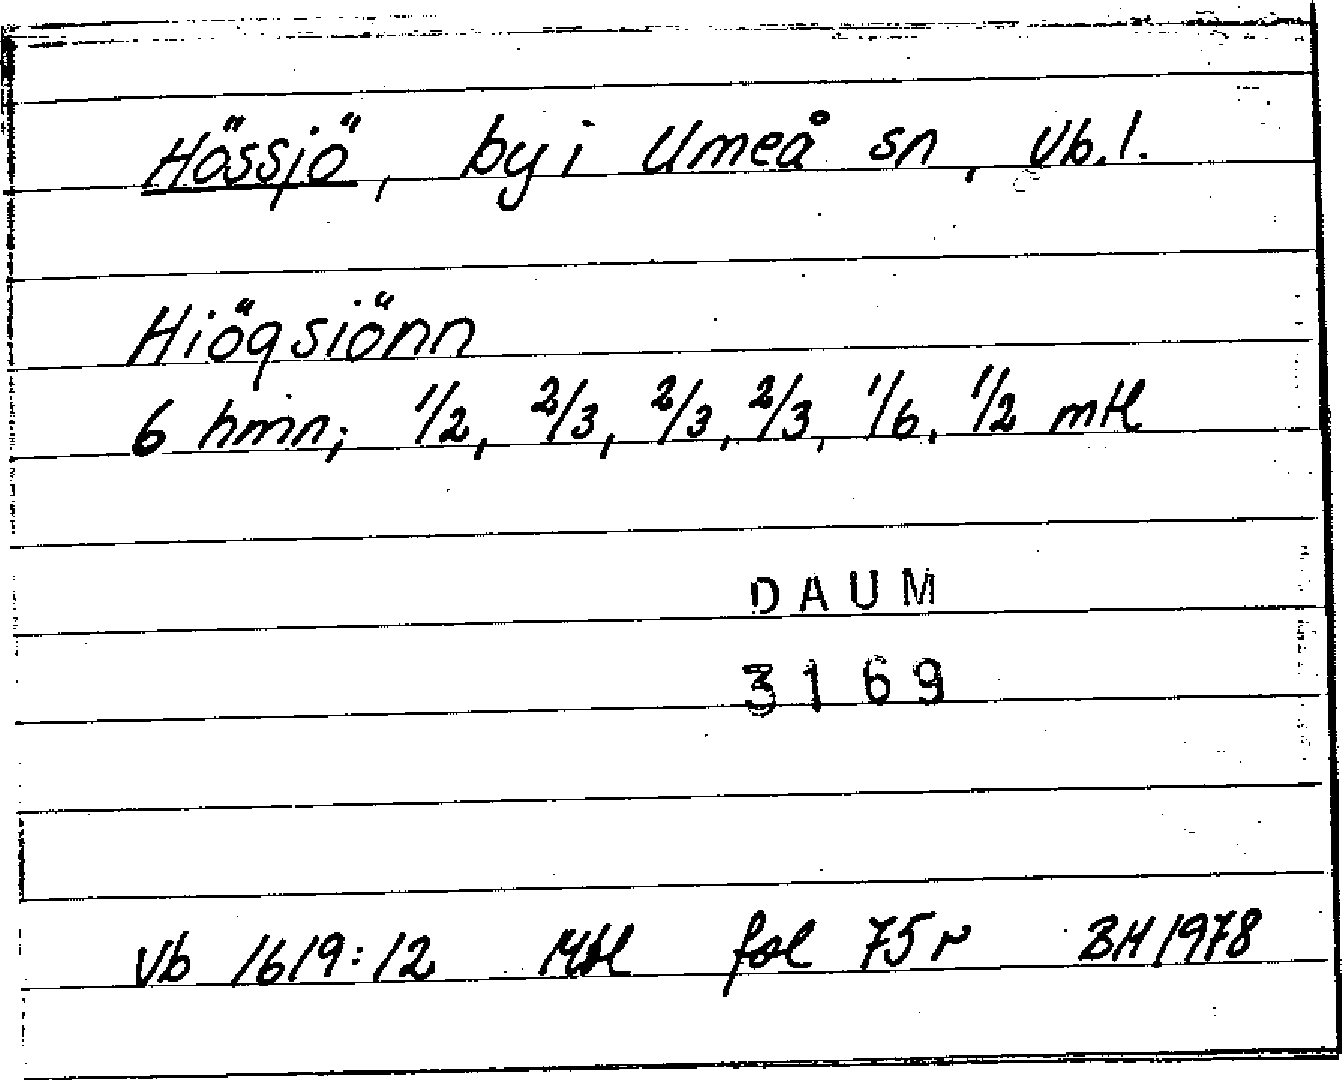 Hössjö, by i Umeå sn, Vb.l.
Hiögsiönn
6 hmn; 1/2, 2/3, 2/3, 2/3, 1/6, 1/2 mtl
DAUM
3169
Vb 1619:12 Mtl fol 75r BH 1978